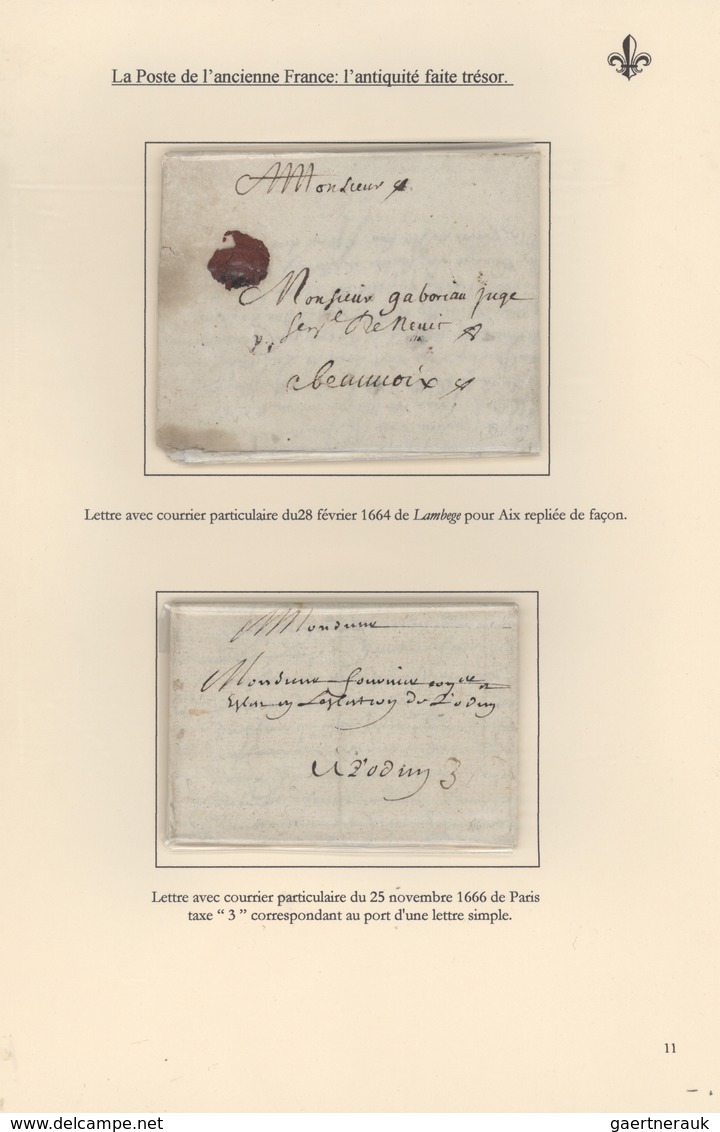 La Poste de l'ancienne France: l'antiquité faite trésor.
Monsieur
Monsieur gaboriau juge
Beauuoix
Lettre avec courrier particulaire du28 février 1664 de Lambege pour Aix repliée de façon.
Monsieur
Monsieur
3
Lettre avec courrier particulaire du 25 novembre 1666 de Paris
taxe “ 3 ” correspondant au port d'une lettre simple.
11
gaertnerauk